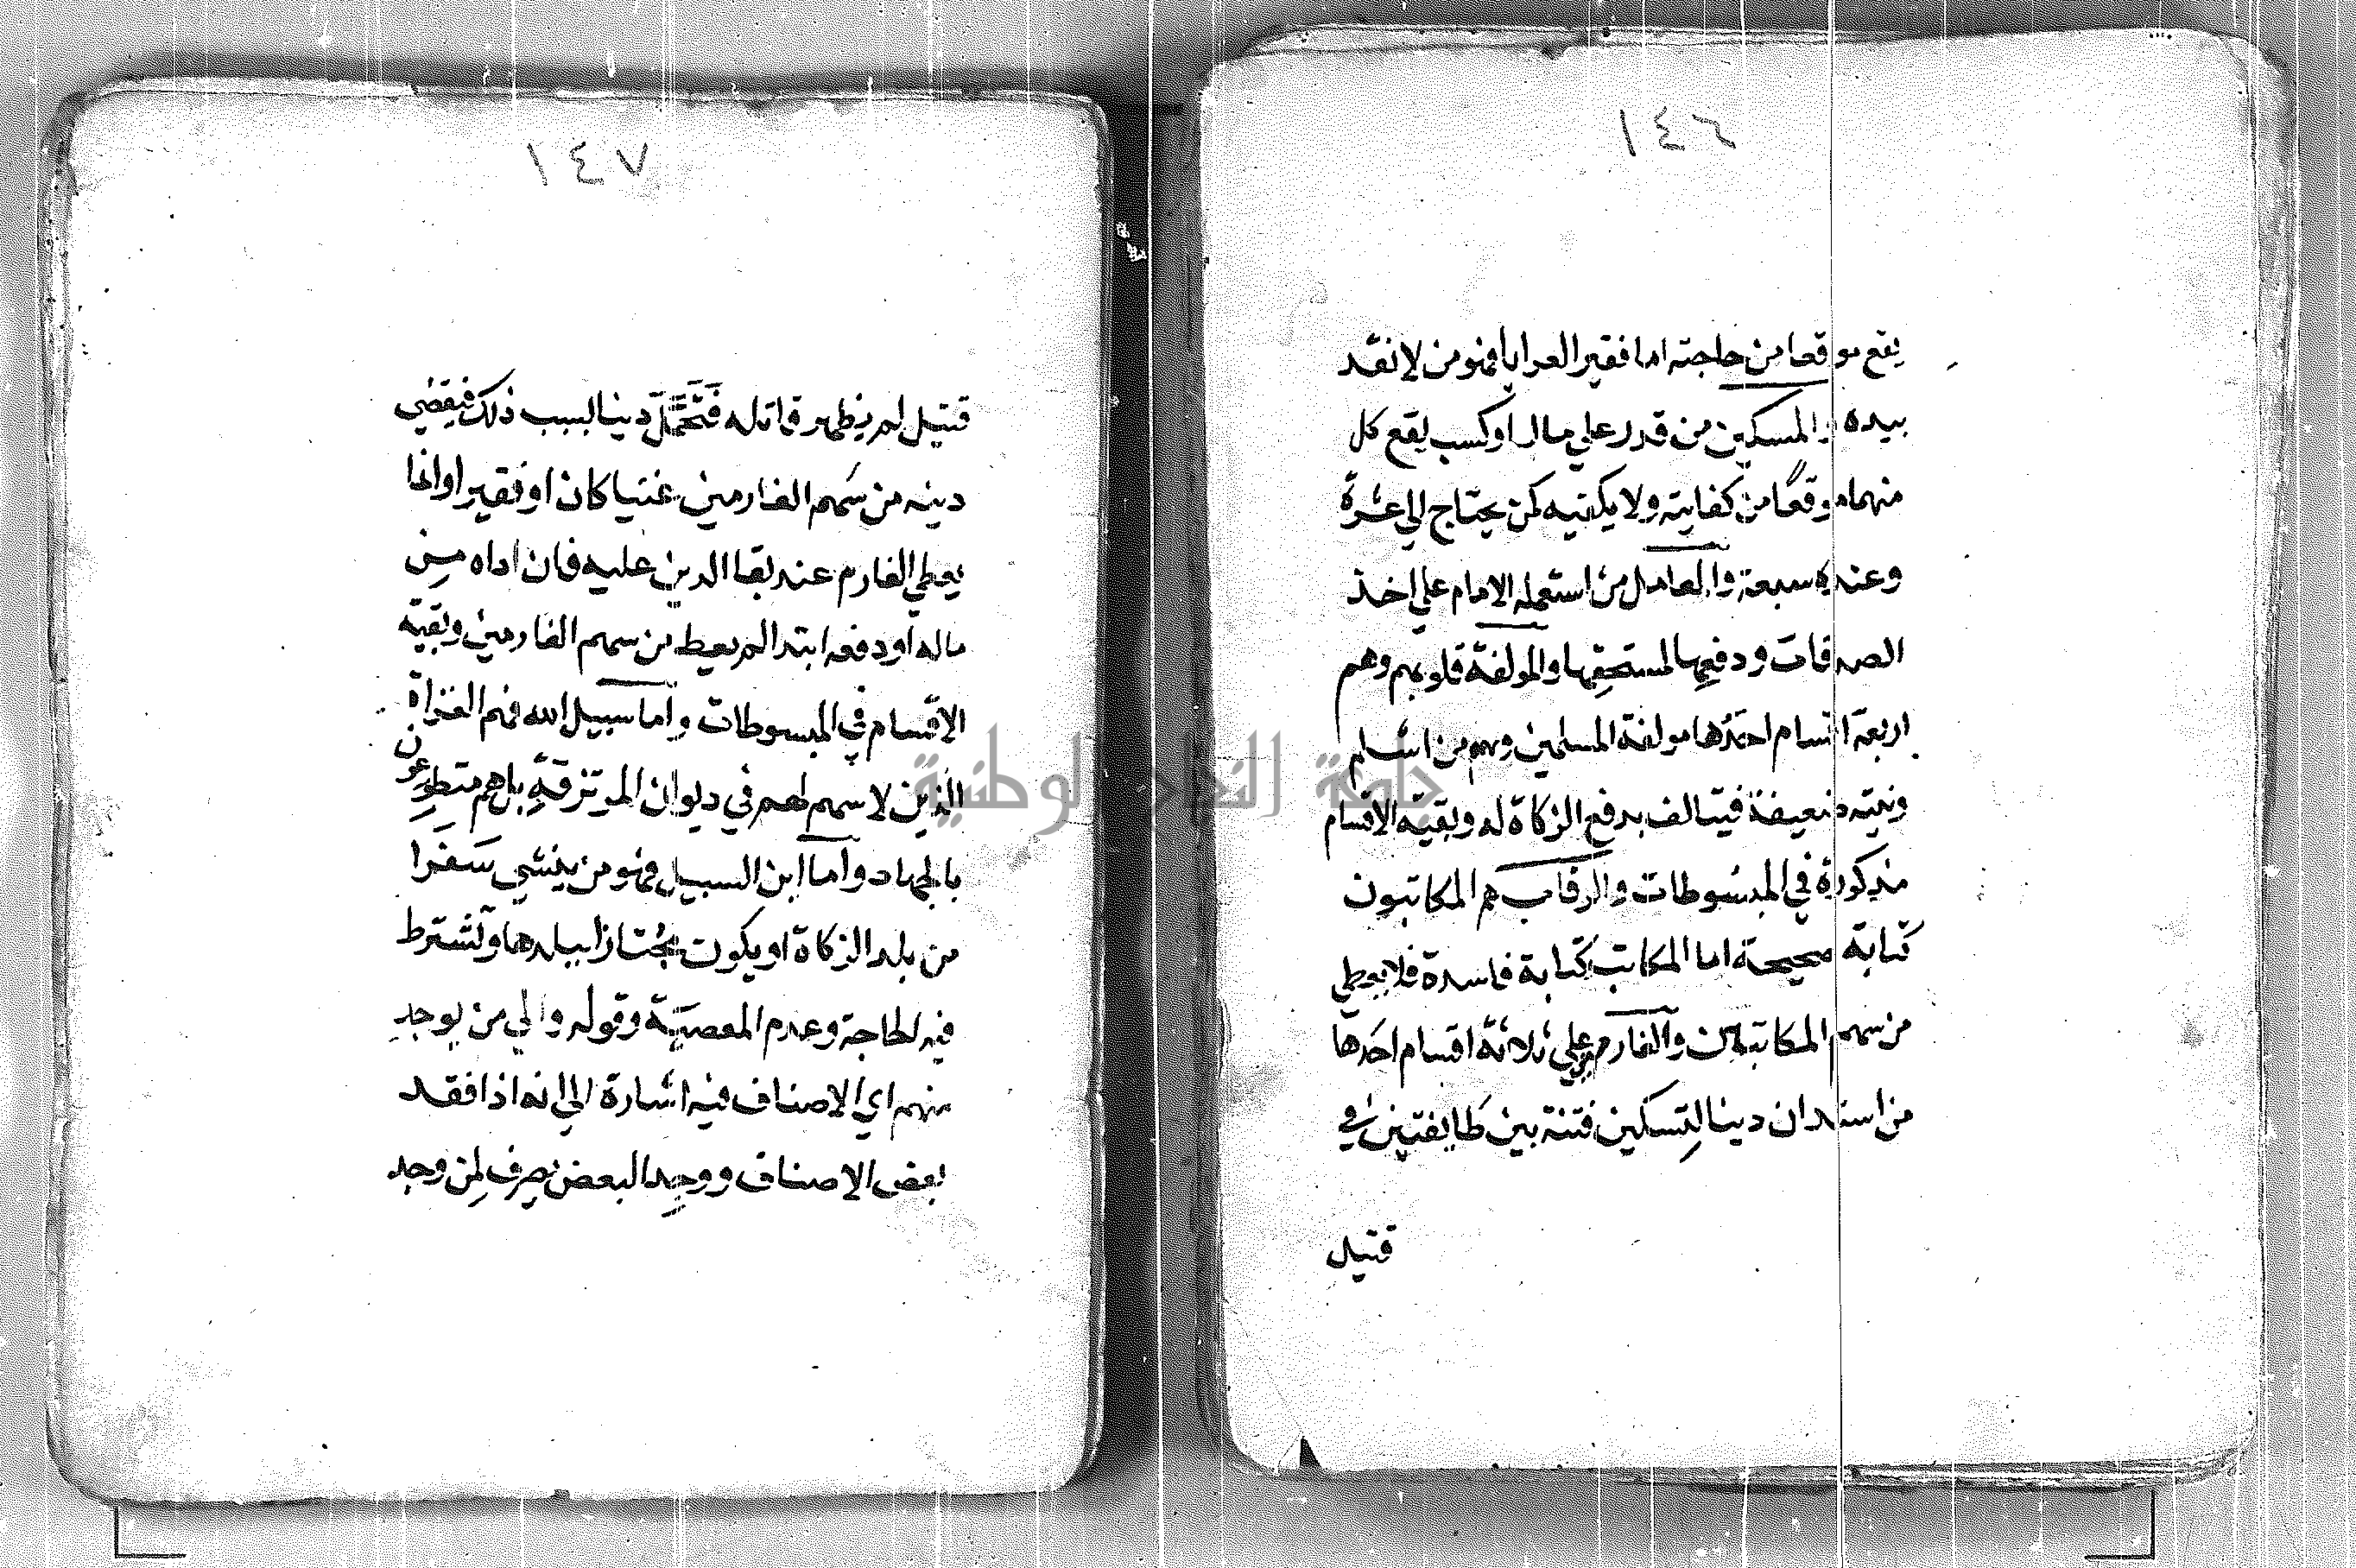 ١٤٦
يقع موقعا من حاجته اما فقير العرايا فهو من لا نقد
بيده والمسكين من قدر على مال او كسب يقع كل
منهما موقعًا من كفايته ولا يكفيه كمن يحتاج الى عشرة
وعنده سبعة والعامل من استعمله الامام على اخذ
الصدقات ودفعها لمستحقها والمولفة قلوبهم وهم
اربعة اقسام احدها مولفة المسلمين وهو من اسلم
ونيته ضعيفة فيتالف بدفع الزكاة له وبقية الاقسام
مذكورة في المبسوطات والرقاب هم المكاتبون
كتابة صحيحة اما المكاتب كتابة فاسدة فلا يعطى
من سهم المكاتبين والغارم على ثلاثة اقسام احدها
من استدان دينا لتسكين فتنة بين طايفتين في
قتيل
١٤٧
قتيل لم يظهر قاتله فَتَحَمَّلَ دينا بسبب ذلك فيقضي
دينه من سهم الغارمين غنيا كان او فقيرا وانما
يعطي الغارم عند بقا الدين عليه فان اداه من
ماله او دفعه ابتدا لم يعط من سهم الغارمين وبقية
الاقسام في المبسوطات واما سبيل الله فهم الغزاة
الذين لا سهم لهم في ديوان المرتزقة بل هم متطوعون
بالجهاد واما ابن السبيل فهو من ينشي سفرا
من بلد الزكاة او يكون مجتازا ببلدها وتشترط
فيه الحاجة وعدم المعصية وقوله والى من يوجد
منهم اي الاصناف فيه اشارة الى انه اذا فقد
بعض الاصناف ووجد البعض يصرف لمن وجد